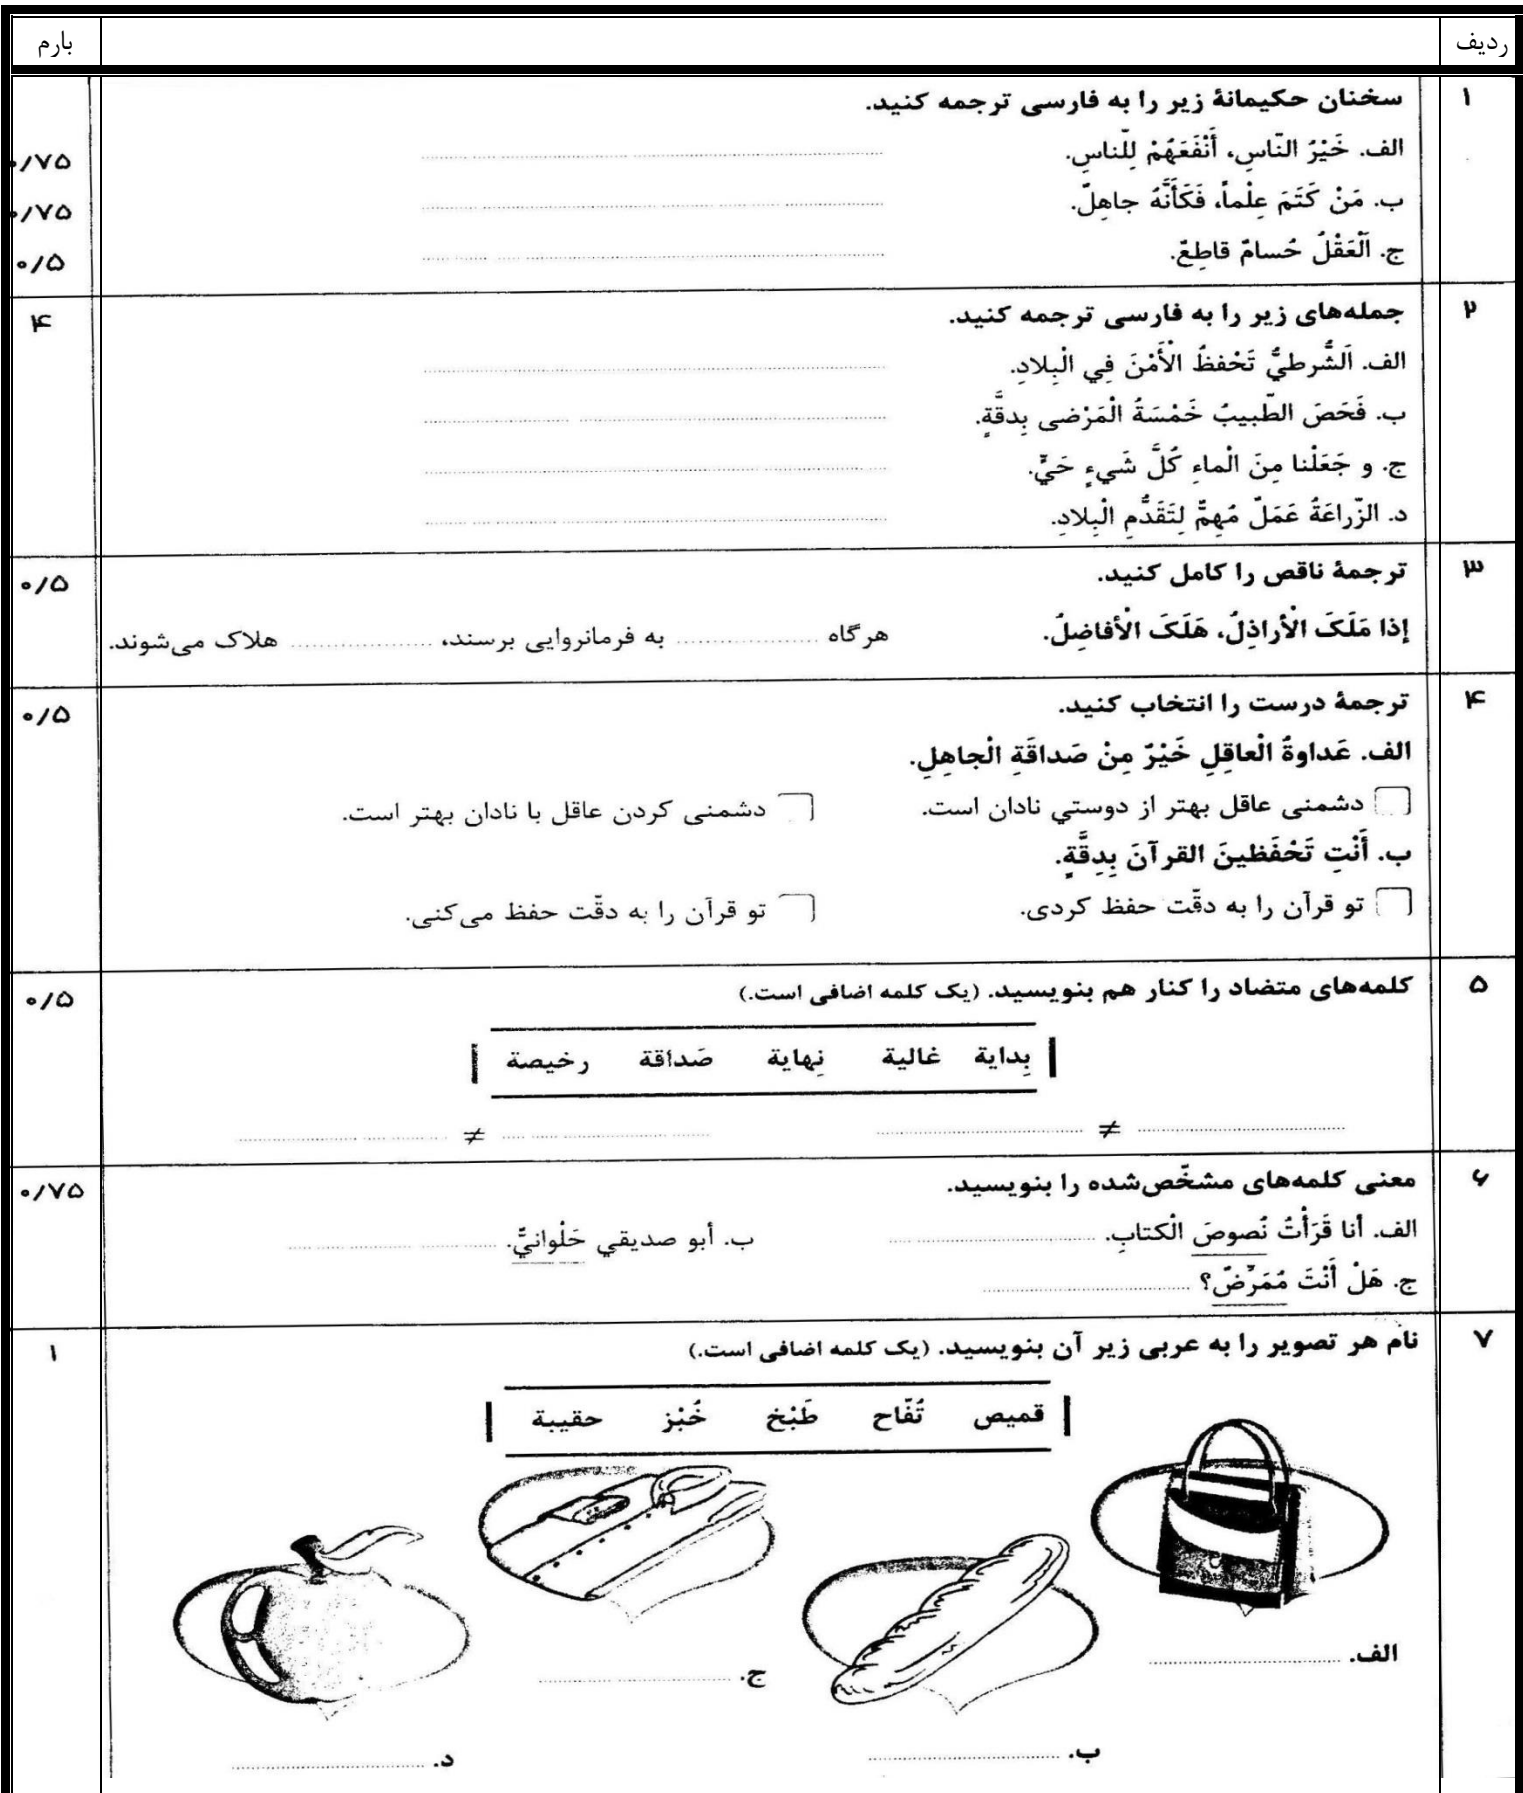 ردیف بارم
۱ سخنان حکیمانهٔ زیر را به فارسی ترجمه کنید.
الف. خَیْرُ النّاسِ، أَنْفَعَهُمْ لِلّناسِ. ۰/۷۵
ب. مَنْ کَتَمَ عِلْماً، فَکَأَنَّهُ جاهِلٌ. ۰/۷۵
ج. اَلْعَقْلُ حُسامٌ قاطِعٌ. ۰/۵
۲ جمله‌های زیر را به فارسی ترجمه کنید. ۴
الف. اَلشُّرطيُّ تَحْفظُ الْأَمْنَ فِي الْبِلادِ.
ب. فَحَصَ الطّبیبُ خَمْسَةُ الْمَرْضی بِدقَّةٍ.
ج. و جَعَلْنا مِنَ الْماءِ کُلَّ شَيءٍ حَيٍّ.
د. الزّراعَةُ عَمَلٌ مُهِمٌّ لِتَقَدُّمِ الْبِلادِ.
۳ ترجمهٔ ناقص را کامل کنید. ۰/۵
إذا مَلَکَ الْأراذِلُ، هَلَکَ الْأفاضِلُ. هرگاه .................. به فرمانروایی برسند، .................. هلاک می‌شوند.
۴ ترجمهٔ درست را انتخاب کنید. ۰/۵
الف. عَداوةُ الْعاقِلِ خَیْرٌ مِنْ صَداقَةِ الْجاهِلِ.
دشمنی عاقل بهتر از دوستي نادان است. دشمنی کردن عاقل با نادان بهتر است.
ب. أَنْتِ تَحْفَظینَ القرآنَ بِدِقَّةٍ.
تو قرآن را به دقّت حفظ کردی. تو قرآن را به دقّت حفظ می‌کنی.
۵ کلمه‌های متضاد را کنار هم بنویسید. (یک کلمه اضافی است.) ۰/۵
بِدایة غالیة نِهایة صَداقة رخیصة
.................. ≠ .................. .................. ≠ ..................
۶ معنی کلمه‌های مشخّص‌شده را بنویسید. ۰/۷۵
الف. أنا قَرَأْتُ نُصوصَ الْکتابِ. .................. ب. أبو صدیقي حَلْوانيٌّ. ..................
ج. هَلْ أَنْتَ مُمَرِّضٌ؟ ..................
۷ نام هر تصویر را به عربی زیر آن بنویسید. (یک کلمه اضافی است.) ۱
قمیص تُفّاح طَبْخ خُبْز حقیبة
الف. ..................
ج. ..................
ب. ..................
د. ..................